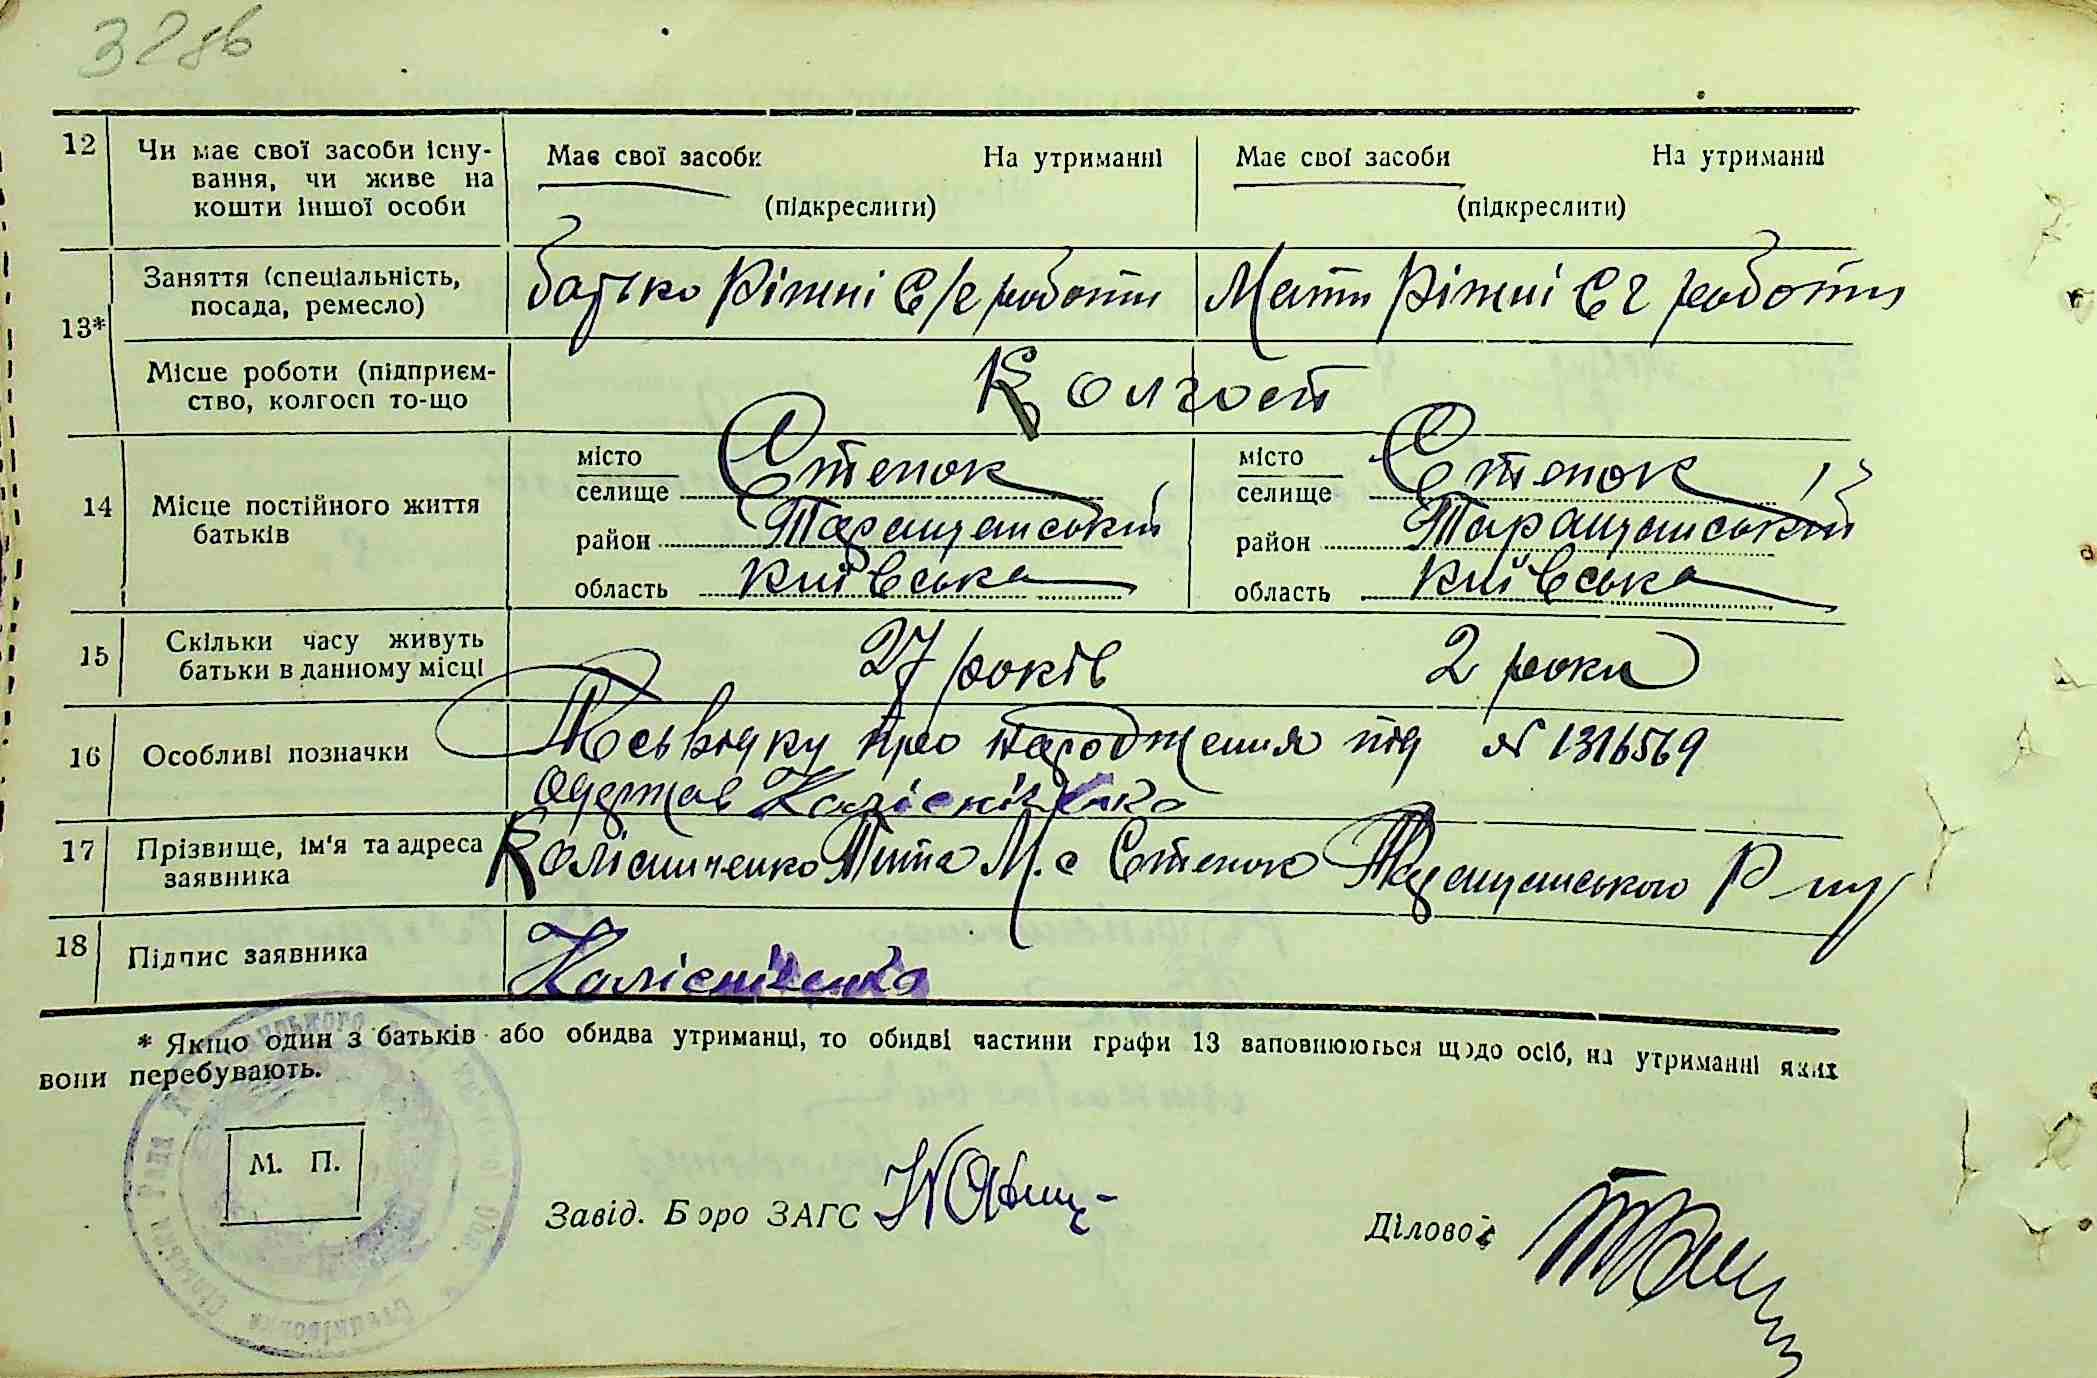 328б
12 Чи має свої засоби існу-
вання, чи живе на
кошти іншої особи
Має свої засоби На утриманні
(підкреслити)
Має свої засоби На утриманні
(підкреслити)
13*
Заняття (спеціальність,
посада, ремесло)
батько Ріжні С/г роботи
Мати Ріжні С г роботи
Місце роботи (підприєм-
ство, колгосп то-що
Колгосп
14 Місце постійного життя
батьків
місто
селище Степок
район Таращанський
область Київська
місто
селище Степок
район Таращанський
область Київська
15 Скільки часу живуть
батьки в данному місці
27 років
2 роки
16 Особливі позначки
Посвідку про народження під № 1316569
одержав
17 Прізвище, ім'я та адреса
заявника
М. с Степок Таращанського Р-ну
18 Підпис заявника
* Якщо один з батьків або обидва утриманці, то обидві частини графи 13 заповнюються щодо осіб, на утриманні яких
вони перебувають.
М. П.
Завід. Бюро ЗАГС
Діловод